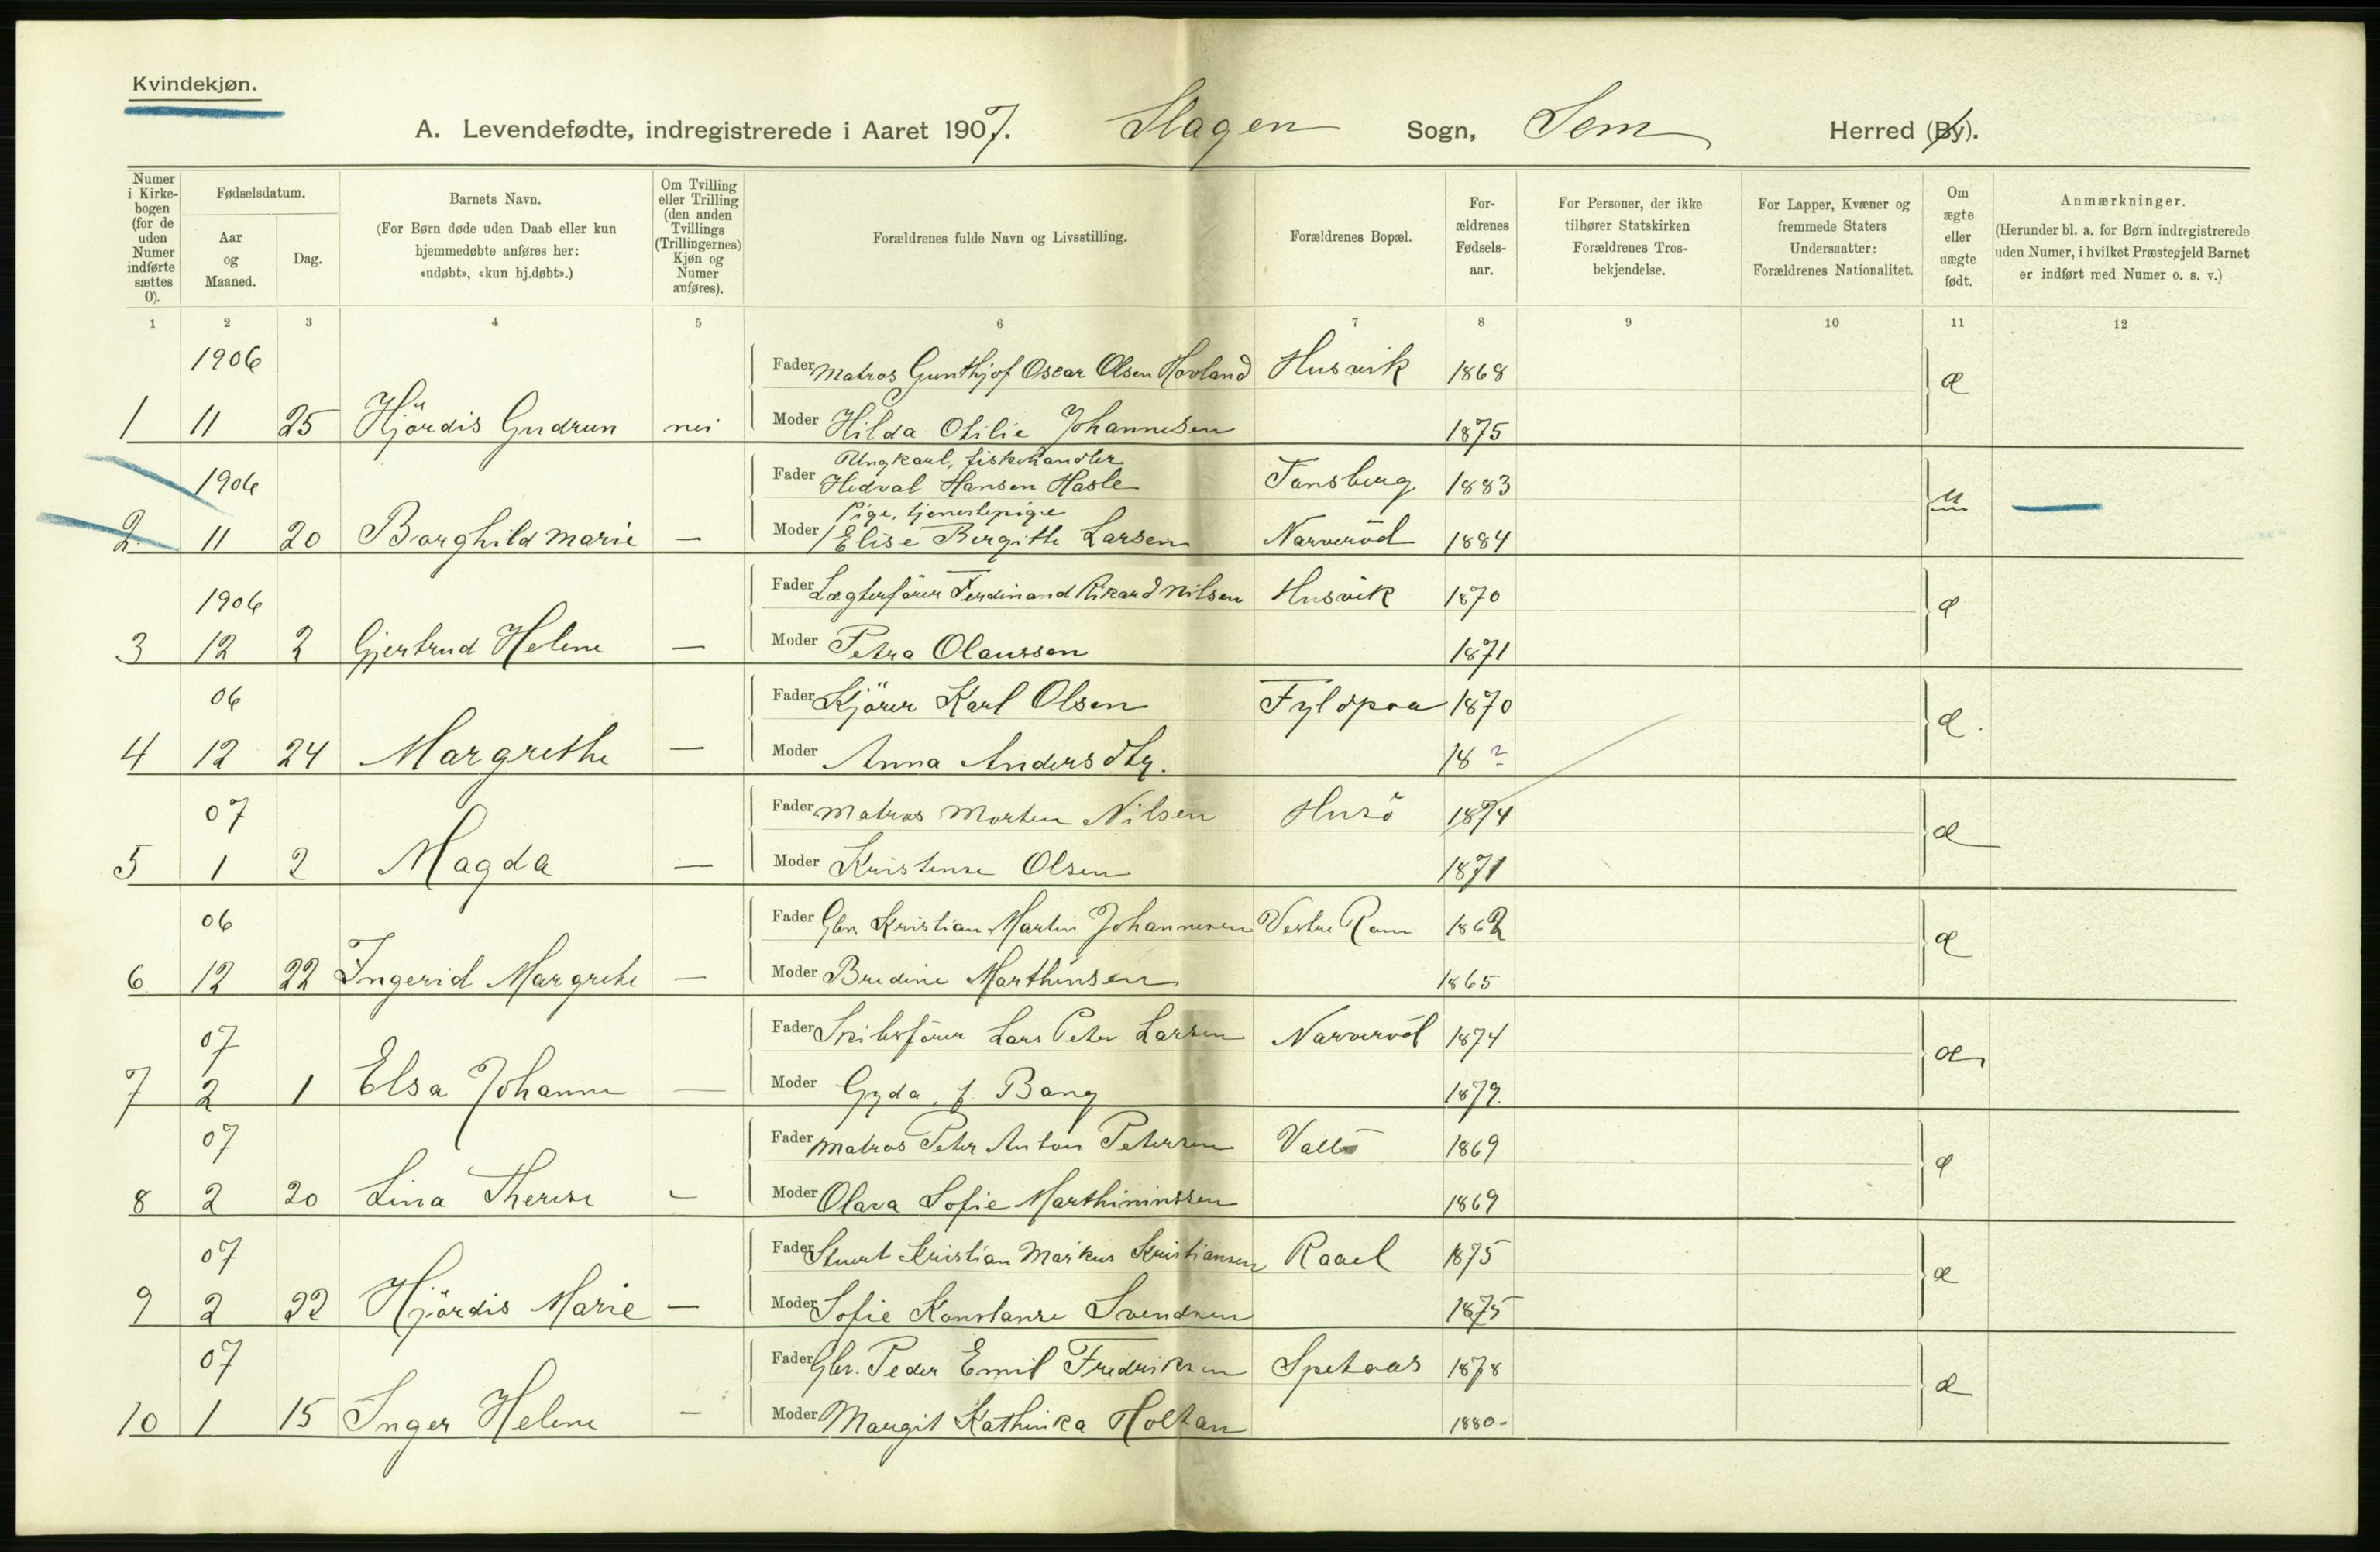 Kvindekjøn.
A. Levendefødte, indregistrerede i Aaret 1907. Slagen Sogn, Sem Herred (By).
Numer i Kirke-bogen (for de uden Numer indførte sættes 0).
Fødselsdatum.
Aar og Maaned.
Dag.
Barnets Navn.
(For Børn døde uden Daab eller kun hjemmedøbte anføres her: «udøbt», «kun hj.døbt».)
Om Tvilling eller Trilling (den anden Tvillings (Trillingernes) Kjøn og Numer anføres).
Forældrenes fulde Navn og Livsstilling.
Forældrenes Bopæl.
For-ældrenes Fødsels-aar.
For Personer, der ikke tilhører Statskirken Forældrenes Tros-bekjendelse.
For Lapper, Kvæner og fremmede Staters Undersaatter: Forældrenes Nationalitet.
Om ægte eller uægte født.
Anmærkninger.
(Herunder bl. a. for Børn indregistrerede uden Numer, i hvilket Præstegjeld Barnet er indført med Numer o. s. v.)
1 2 3 4 5 6 7 8 9 10 11 12
1906 Fader Matros Gunthjof Oscar Olsen Hovland Husvik 1868 æ
1 11 25 Hjördis Gudrun nei Moder Hilda Otilie Johannesen 1875
Ungkarl, fiskehandler
1906 Fader Hedval Hansen Hasle Tønsberg 1883 u
Pige, tjenestepige
2 11 20 Borghild Marie — Moder Elise Bergithe Larsen Narveröd 1884
1906 Fader Lægterförer Ferdinand Rikard Nilsen Husvik 1870 æ
3 12 2 Gjertrud Helene — Moder Petra Olaussen 1871
06 Fader Kjörer Karl Olsen Fyldpaa 1870 æ.
4 12 24 Margrethe — Moder Anna Andersdtr. 18 ?
07 Fader Matros Morten Nilsen Husö 1874 æ
5 1 2 Magda — Moder Kristense Olsen 1871
06 Fader Gbr. Kristian Martin Johannesen Vestre Ram 1862 æ
6 12 22 Ingerid Margrete — Moder Bredine Marthinsen 1865
07 Fader Skibsförer Lars Peter Larsen Narveröd 1874 æ
7 2 1 Elsa Johanne — Moder Gyda, f. Bang 1879.
07 Fader Matros Peter Anton Petersen Vallö 1869 æ
8 2 20 Lina Therese — Moder Olava Sofie Marthininssen 1869
07 Fader Stuert Kristian Markus Kristiansen Raael 1875 æ
9 2 22 Hjördis Marie — Moder Sofie Konstanse Svendsen 1875
07 Fader Gbr. Peder Emil Fredriksen Spetaas 1878 æ
10 1 15 Inger Helene — Moder Margit Kathinka Holtan 1880-